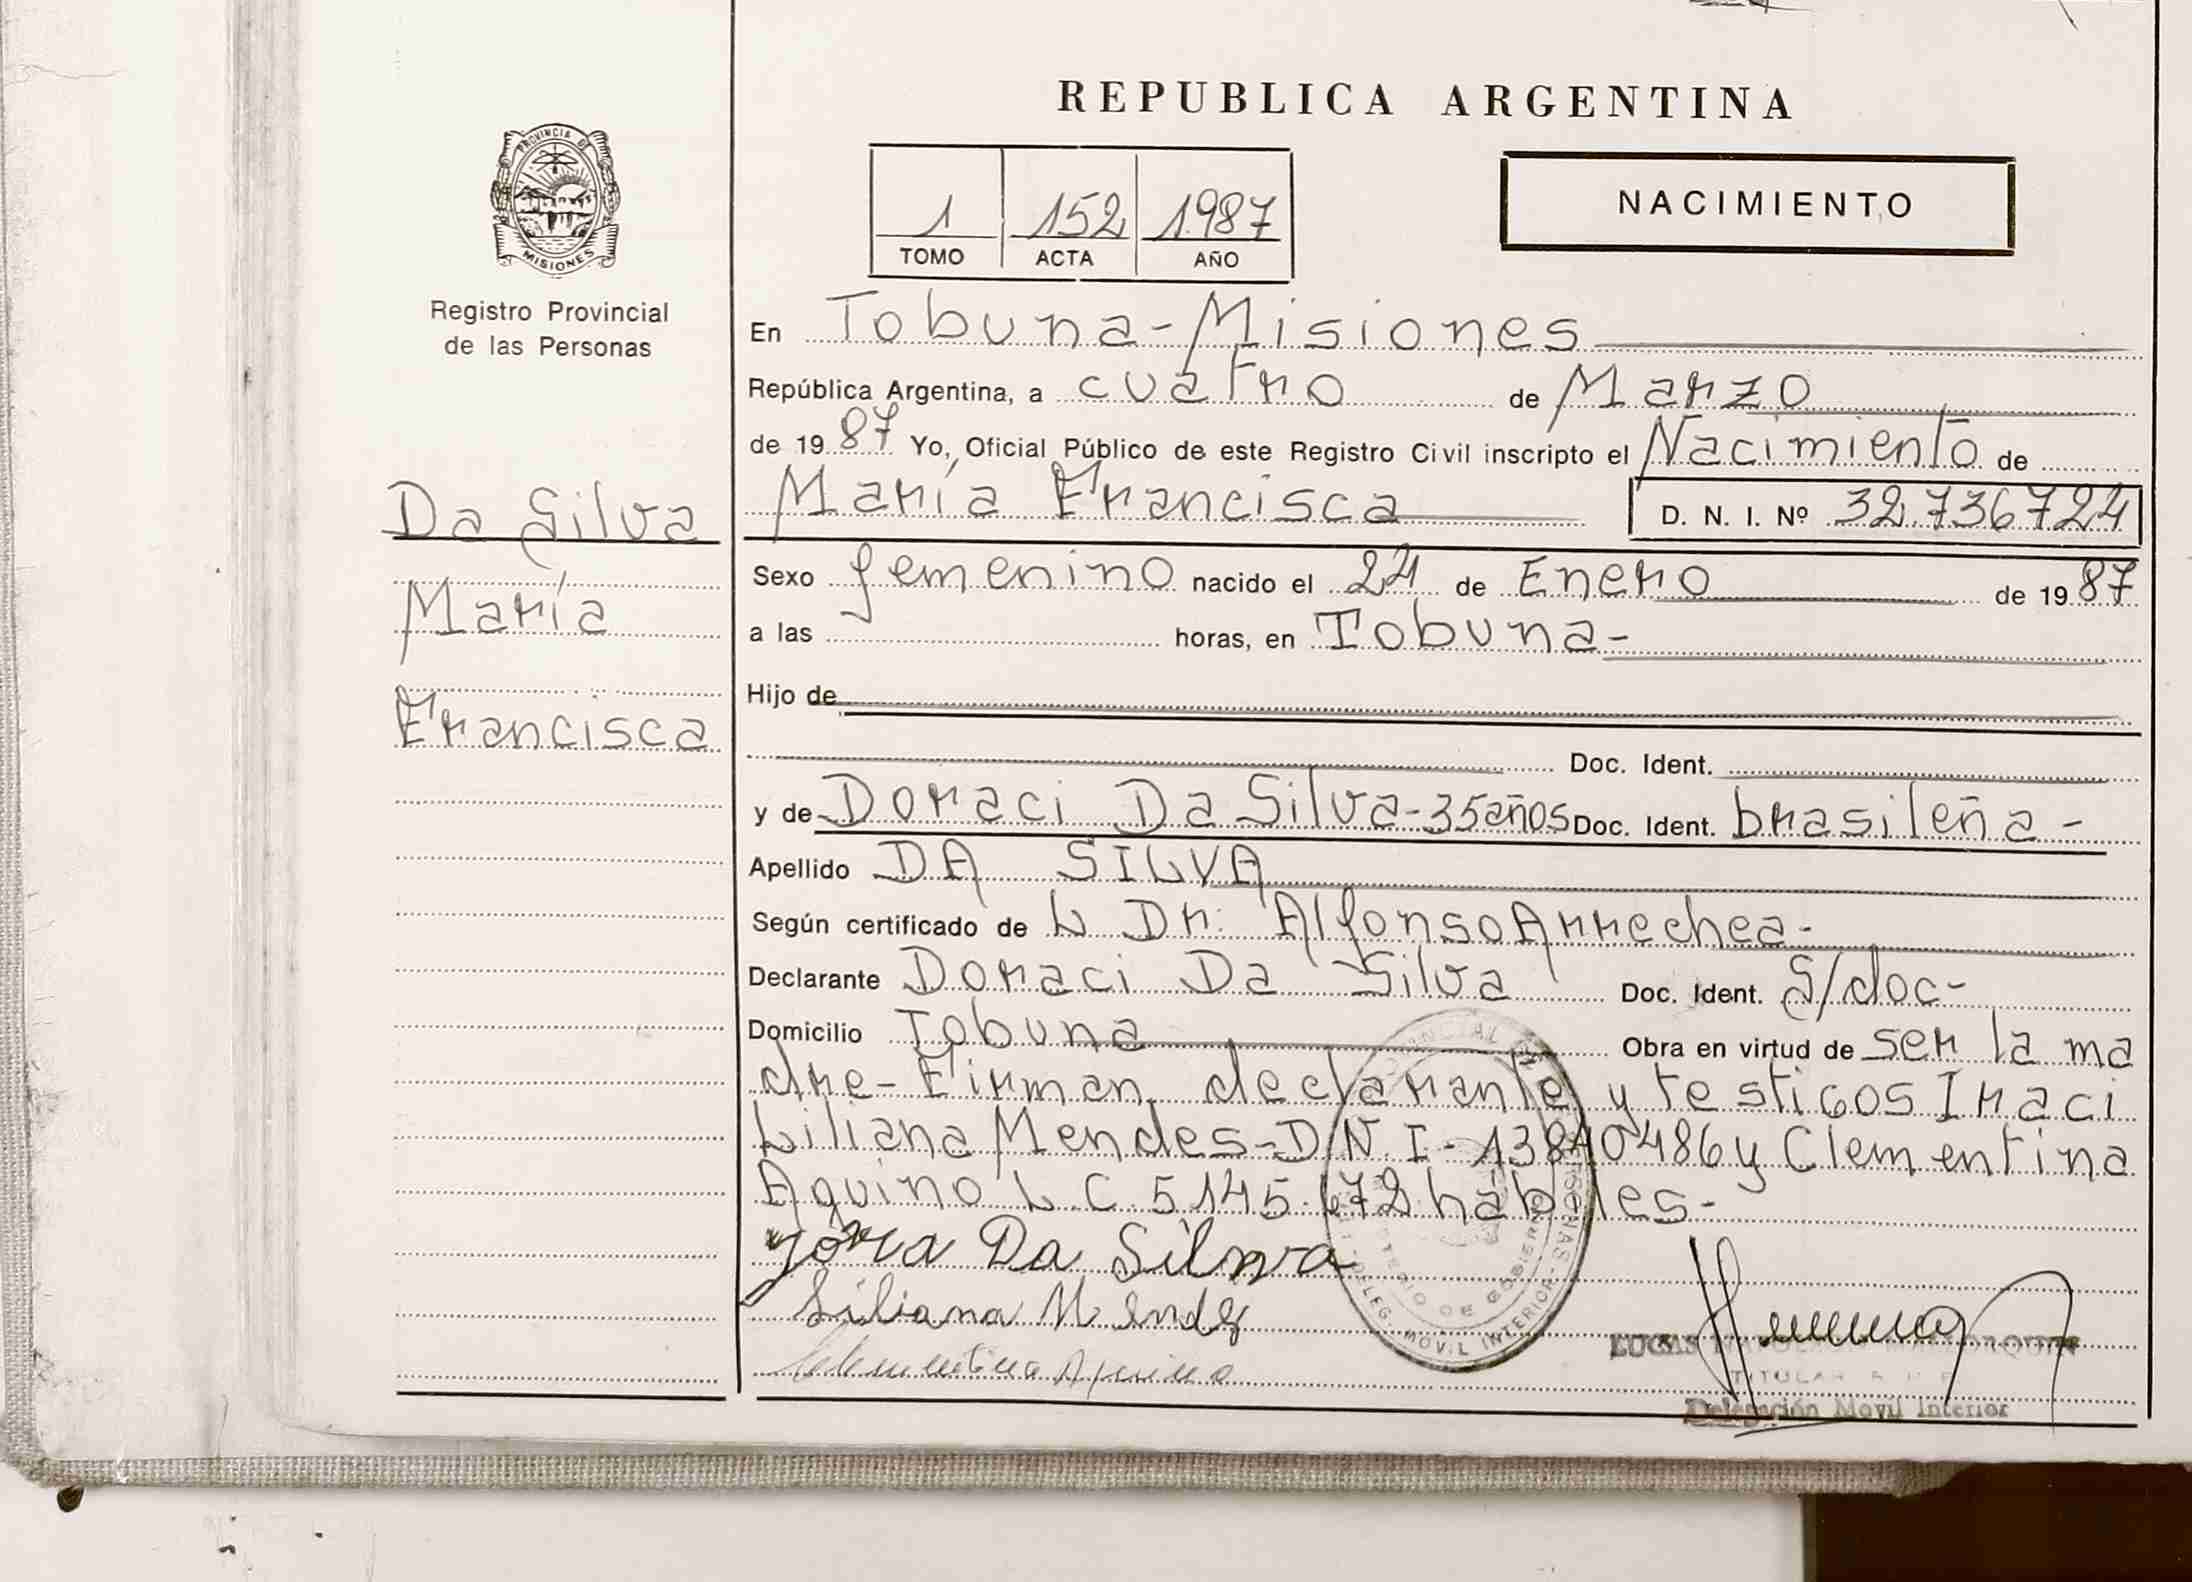 PROVINCIA DE
MISIONES
Registro Provincial
de las Personas
Da Silva
María
Francisca
REPUBLICA ARGENTINA
1 152 1987
TOMO ACTA AÑO
NACIMIENTO
En Tobuna-Misiones
República Argentina, a cuatro de Marzo
de 1987 Yo, Oficial Público de este Registro Civil inscripto el Nacimiento de
María Francisca D. N. I. Nº 32.736724
Sexo femenino nacido el 24 de Enero de 1987
a las horas, en Tobuna-
Hijo de
Doc. Ident.
y de Doraci Da Silva-35años Doc. Ident. brasileña-
Apellido DA SILVA
Según certificado de L Dr. Alfonso Arrechea-
Declarante Doraci Da Silva Doc. Ident. S/doc-
Domicilio Tobuna Obra en virtud de ser la ma
dre-Firman declarante y testigos Iraci
Liliana Mendes-D.N.I-13840486 y Clementina
Aquino L.C.5145.672 hábiles.-
Da Silva
Liliana Mendes
Clementina Aquino
DELEG. MOVIL INTERIOR
LUCAS
TITULAR
Delegación Movil Interior